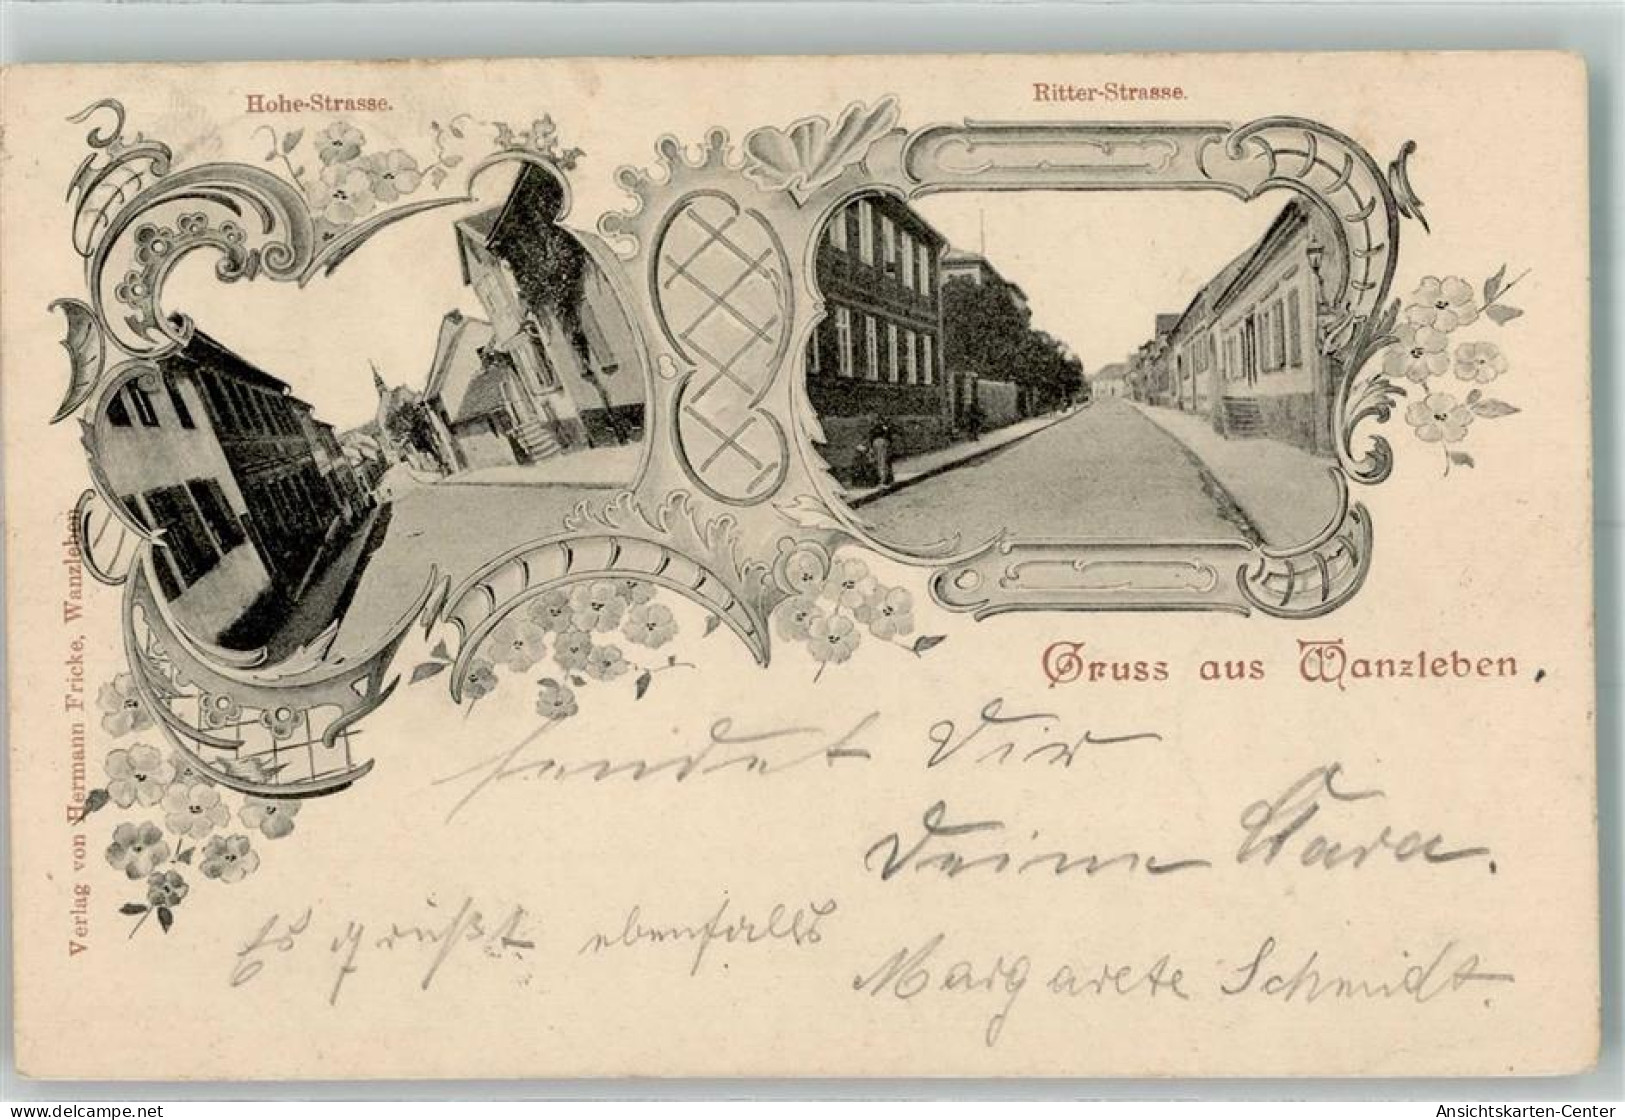 Hohe-Strasse.
Ritter-Strasse.
Verlag von Hermann Fricke, Wanzleben
Gruss aus Wanzleben,
sendet Dir
Deine Clara.
Es grüßt ebenfalls
Margarete Schmidt.
delcampe.net
Ansichtskarten-Center